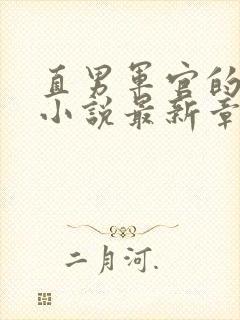 直男军官的
小说最新章
二月河.